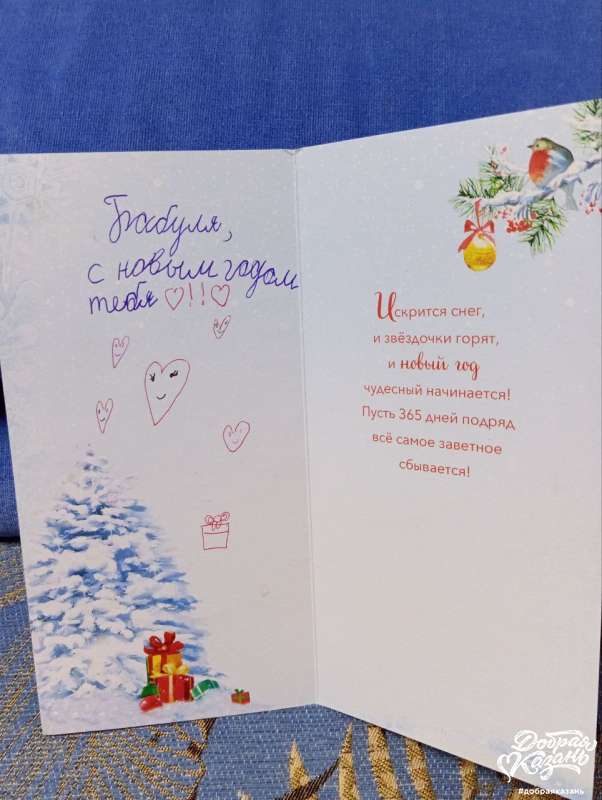 Бабуля,
с новым годом
тебя ♡!!♡
Искрится снег,
и звёздочки горят,
и новый год
чудесный начинается!
Пусть 365 дней подряд
всё самое заветное
сбывается!
Добрая
Казань
#добраяказань